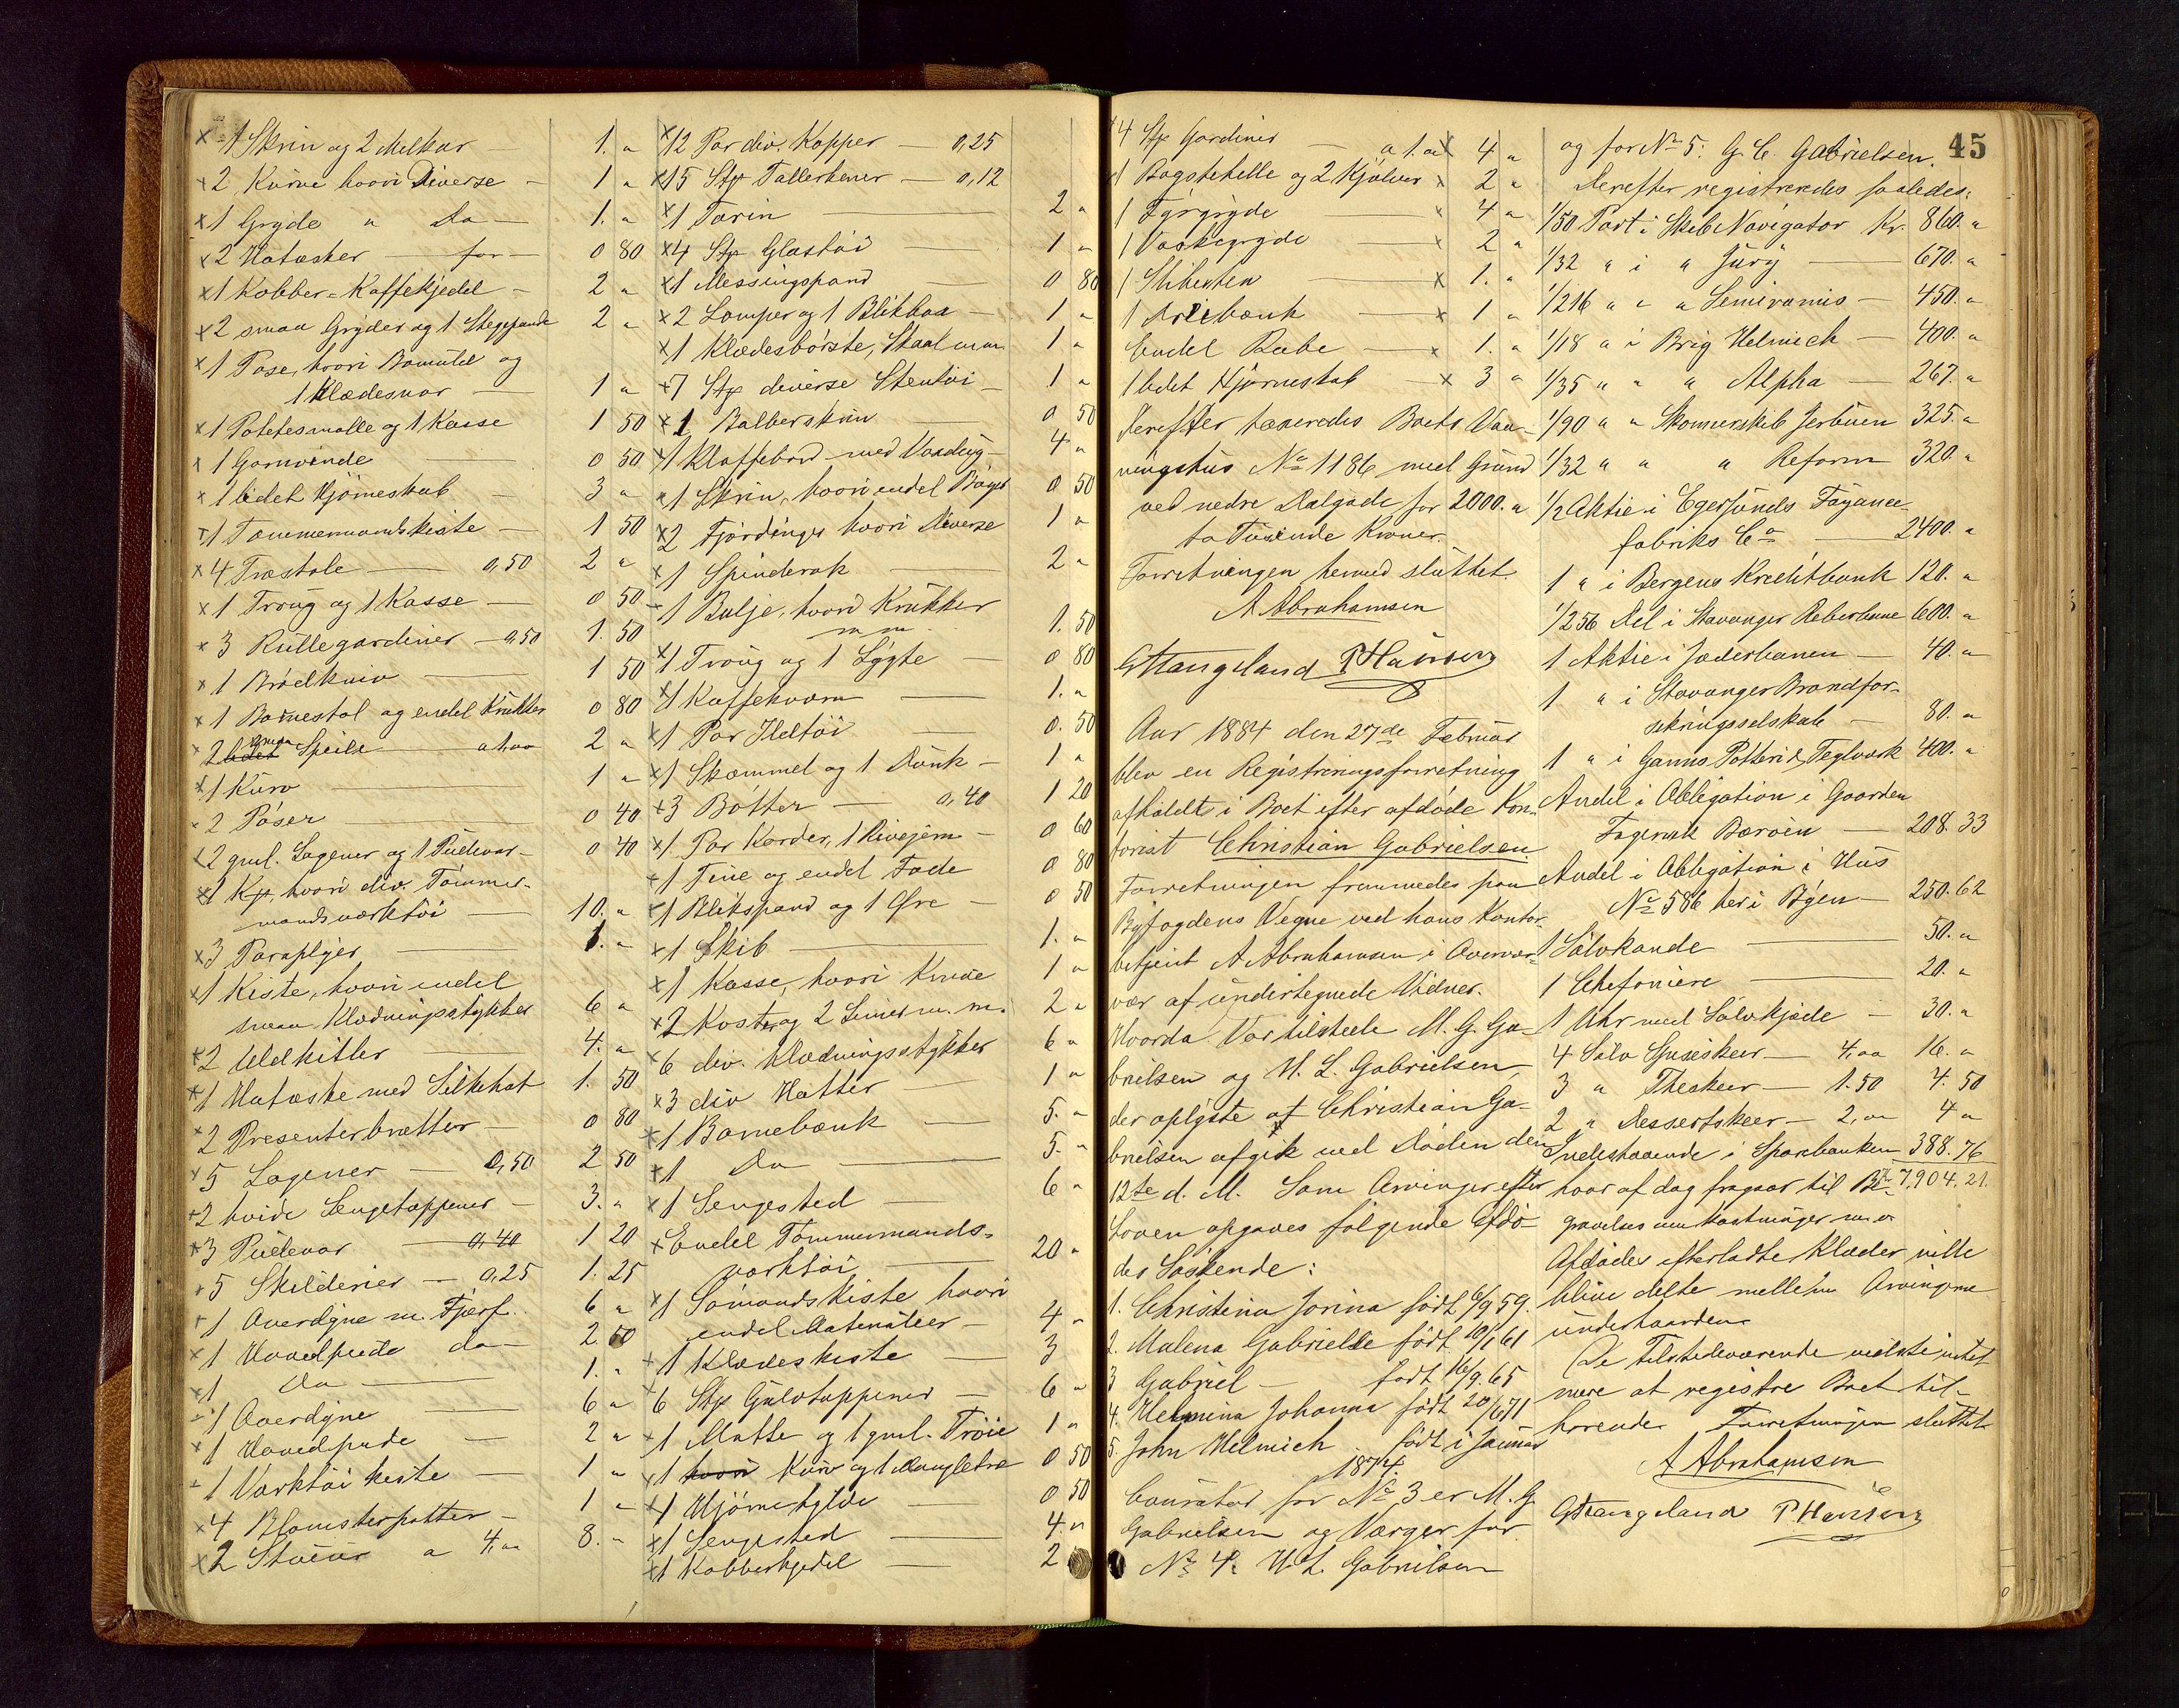 × 1 Skrin og 2 Melkar — 1. "
× 2 Kurve hvori Diverse — 1 "
× 1 Gryde " Do — 1. "
× 2 Hatæsker — for — 0 80
× 1 Kobber-Kaffekjedel — 2 "
× 2 smaa Gryder og 1 Stegepande 2 "
× 1 Pose, hvori Bomuld og
1 Klædesvar — 1 "
× 1 Potetesmølle og 1 Kasse 1 50
× 1 Garnvinde — 0 50
× 1 lidet Hjørneskab — 3 "
× 1 Tømmermandskiste — 1 50
× 4 Træstole — 0,50 2 "
× 1 Troug og 1 Kasse — 0 50
× 3 Rullegardiner — 0,50 1. 50
× 1 Brødkniv — 1 50
× 1 Barnestol og endel Krukker 0 80
× 2 smaa Speile a 1,00 2 "
× 1 Kurv — 1 "
× 2 Poser — 0 40
× 2 gml. Lagener og 1 Pudevar — 0 40
× 1 Kp. hvori div. Tømmer-
mandsværktøi — 10. "
× 3 Paraplyer — 1. "
× 1 Kiste, hvori endel
smaa Klædningsstykker 6 "
× 2 Uldkitler — 4. "
× 1 Hatæske med Silkehat 1. 50
× 2 Presenterbretter — 0 80
× 5 Lagener — 0,50 2 50
× 2 hvide Sengetæpper — 3. "
× 3 Pudevar — 0,40 1 20
× 5 Skilderier — 0,25 1. 25
× 1 Overdyne m. Fjær f. 6 "
× 1 Hovedpude do — 2 50
× 1 Do — 1. "
× 1 Overdyne — 6 "
× 1 Hovedpude — 2 "
× 1 Værktøi kiste — 1 "
× 4 Blomsterpotter — 1 "
× 2 Stueur a 4,00 8. "
× 12 Par div. Kopper — 0,25
× 15 Stk Tallerkener — 0,12
× 1 Terin — 2 "
× 4 Stk Glastøi — 1 "
× 1 Messingspand — 0 80
× 2 Lamper og 1 Blikbox — 1 "
× 1 Klædesbørste, Skaal m.m. 1 "
× 7 Stk diverse Stentøi — 1 "
× 1 Balberskrin 0 50
× 1 Klaffebord med Voxdug — 4 "
× 1 Skrin, hvori endel Bøger 0 50
× 2 Fjordinger hvori Diverse 1 "
× 1 Spinderok — 2 "
× 1 Balje, hvori Krukker
m m. 1. 50
× 1 Troug og 1 Løgte — 0 80
× 1 Kaffekværn — 1. "
× 1 Par Ildtøi — 0. 50
× 1 Skammel og 1 Dunk — 1 "
× 3 Bøtter — 0,40 1 20
× 1 Par Karder, 1 Rivejern — 0 60
× 1 Tine og endel Fade 0 80
× 1 Blikspand og 1 Øre — 0 50
× 1 Skib — 1. "
× 1 Kasse, hvori Knive 1 "
× 2 Koste og 2 Limer m. m. 2 "
× 6 div. Klædningsstykker 6 "
× 3 div Hatter — 1 "
× 1 Barnebænk — 5. "
× 1 Do — 5. "
× 1 Sengested — 6 "
× Endel Tømmermands-
værktøi — 20 "
× 1 Sømandskiste hvori
endel Materialier — 4 "
× 1 Klædeskiste — 3
× 6 Stk Gulvtæpper — 6 "
× 1 Matte og 1 gml. Trøie 1 "
× 1 Kurv og 1 Mangletræ 0 50
× 1 Hjørnehylde — 0 50
× 1 Sengested — 4. "
× 1 Kobberkjedel — 2
45
4 Stk Gardiner — a 1.00 × 4 "
1 Bagstehelle og 2 Kjølver × 2 "
1 Fyrgryde — × 4 "
1 Vaskegryde — × 2 "
1 × 1. "
1 × 1 "
Endel Ræbe — × 1. "
1 lidet Hjørneskab — × 3 "
Derefter taxeredes Boets Vaa-
ningshus No 1186 med Grund
ved nedre Dalgade for 2000. "
to Tusinde Kroner.
Forretningen hermed sluttet.
A Abrahamsen
G Stangeland P Hansen
Aar 1884 den 27de Februar
blev en Registreringsforretning
afholdt i Boet efter afdøde Kon-
torist Christian Gabrielsen.
Forretningen fremmedes paa
Byfogdens Vegne ved hans Kontor-
betjent A Abrahamsen i Overvær-
vær af undertegnede Vidner.
Hvorda Var tilstede M. G. Ga-
brielsen og H. L. Gabrielsen,
der oplyste at Christian Ga-
brielsen afgik ved Døden den
12te d. M. Som Arvinger efter
Loven opgaves følgende Afdø-
des Søskende:
1. Christina Jorina født 6/9 59.
2. Malena Gabrielle født 10/1 61
3 Gabriel — født 16/9. 65
4. Helmina Johanna født 20/6 71
5. John Helmich født i Januar
1874.
Courator for No 3 er M. G.
Gabrielsen og Værger for
No 4: H. L. Gabrielsen
og for No 5: G. C. Gabrielsen.
Derefter registreredes saaledes:
1/50 Part i Skib Navigator Kr. 860. "
1/32 " i " Jury — 670. "
1/216 " " " Semiramis — 450. "
1/18 " i Brig Helmich — 400. "
1/35 " " " Alpha — 267. "
1/90 " " Skonnerskib Jerbuen 325. "
1/32 " " " Reform 320. "
1/2 Aktie i Egersunds Fayance-
fabriks Co — 2400. "
1 " i Bergens Kreditbank 120. "
1/256 Del i Stavanger Reberbane 600. "
1 Aktie i Jæderbanen — 40. "
1 " i Stavanger Brandfor-
sikringsselskab — 80. "
1 " i Ganns Potteri & Teglværk 400. "
Andel i Obligation i Gaarden
Fagervik Barøen — 208. 33
Andel i Obligation i Hus
No 586 her i Byen — 250. 62
1 Sølvkande — 50. "
1 Chefoniere — 20. "
1 Uhr med Sølvkjæde — 30. "
4 Sølv Spiseskeer — 4,00 16. "
3 " Theskeer — 1.50 4. 50
2 " Dessertskeer — 2,00 4 "
Indestaaende i Sparebanken 388. 76
hvor af dog fragaar til Be- 7,904. 21.
gravelses omkostninger m.v.
Afdødes efterladte Klæder ville
blive delte mellem Arvingerne
underhaanden.
De Tilstedeværende vidste intet
mere at registre Boet til-
hørende. Forretningen sluttet
A Abrahamsen
G Stangeland P. Hansen